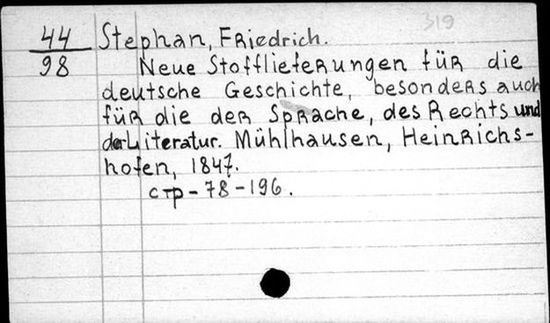 319
44 Stephan, Friedrich.
98 Neue Stofflieferungen für die
deutsche Geschichte, besonders auch
für die der Sprache, des Rechts und
der Literatur. Mühlhausen, Heinrichs-
hofen, 1847.
стр - 78 - 196.